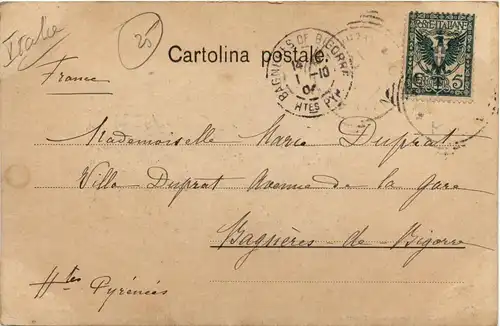 Italie
25
Cartolina postale
POSTE ITALIANE
C. 5
BAGNÈRES DE BIGORRE
1 -10
04
HTES PYR.
France
Mademoiselle Marie Duprat
Villa Duprat Avenue de la Gare
Bagnères-de-Bigorre
Htes Pyrénées